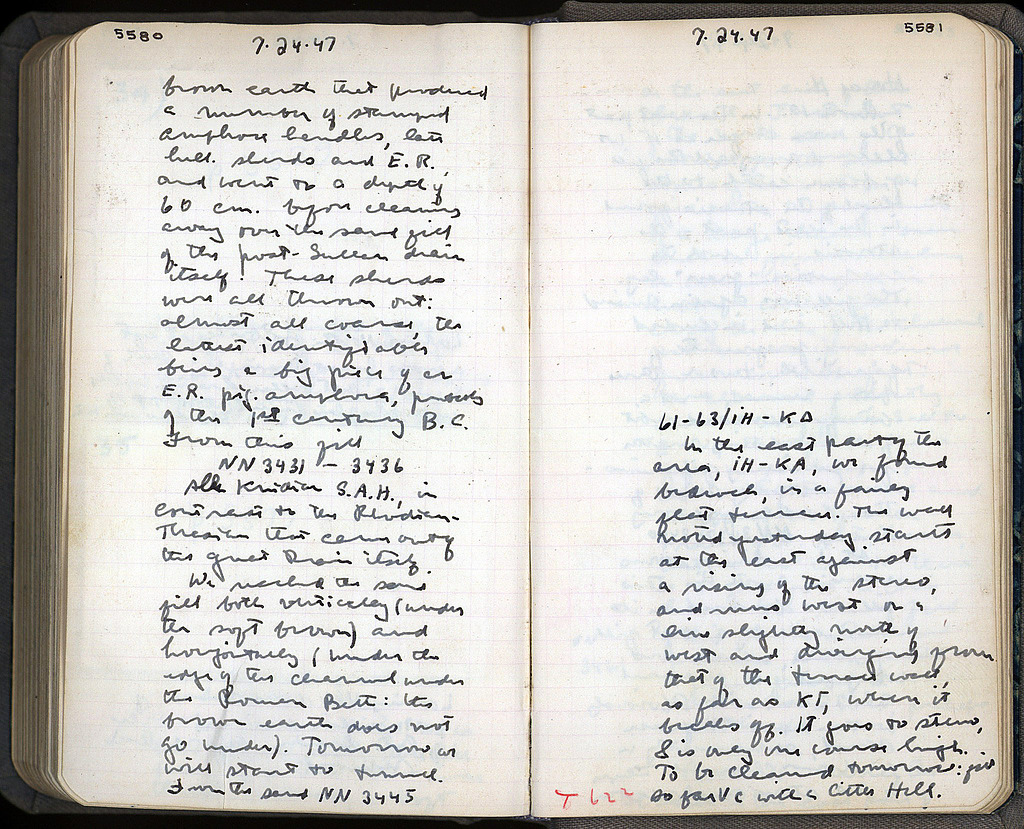 5580
7.24.47
brown earth that produced
a number of stamped
amphora handles, late
hell. sherds and E.R.,
and went to a depth of
60 cm. before cleaning
away over the sand fill
of the post-Sullan drain
itself. These sherds
were all thrown out:
almost all coarse, the
latest identifiable
being a big piece of an
E.R. pig. amphora, precedes
of the 1st century B.C.
From this fill
NN 3431 - 3436
All Knidian S.A.H., in
contrast to the Rhodian-
Thasian that came out of
the great Drain itself.
We reached the sand
fill both vertically (under
the soft brown) and
horizontally (under the
edge of the channel under
the Roman Bett: the
brown earth does not
go under). Tomorrow we
will start to tunnel.
From the sand NN 3445
7.24.47
5581
61-63/ΙΗ - ΚΔ
In the east part of the
area, ΙΗ-ΚΑ, we found
bedrock, in a fairly
flat terrace. The wall
noted yesterday starts
at the east against
a rising of the stereo,
and runs west on a
line slightly north of
west and diverging from
that of the terrace wall,
as far as ΚΓ, where it
breaks off. It goes to stereo,
& is only one course high.
To be cleaned tomorrow: fill
so far V c with a little Hell.
T 622